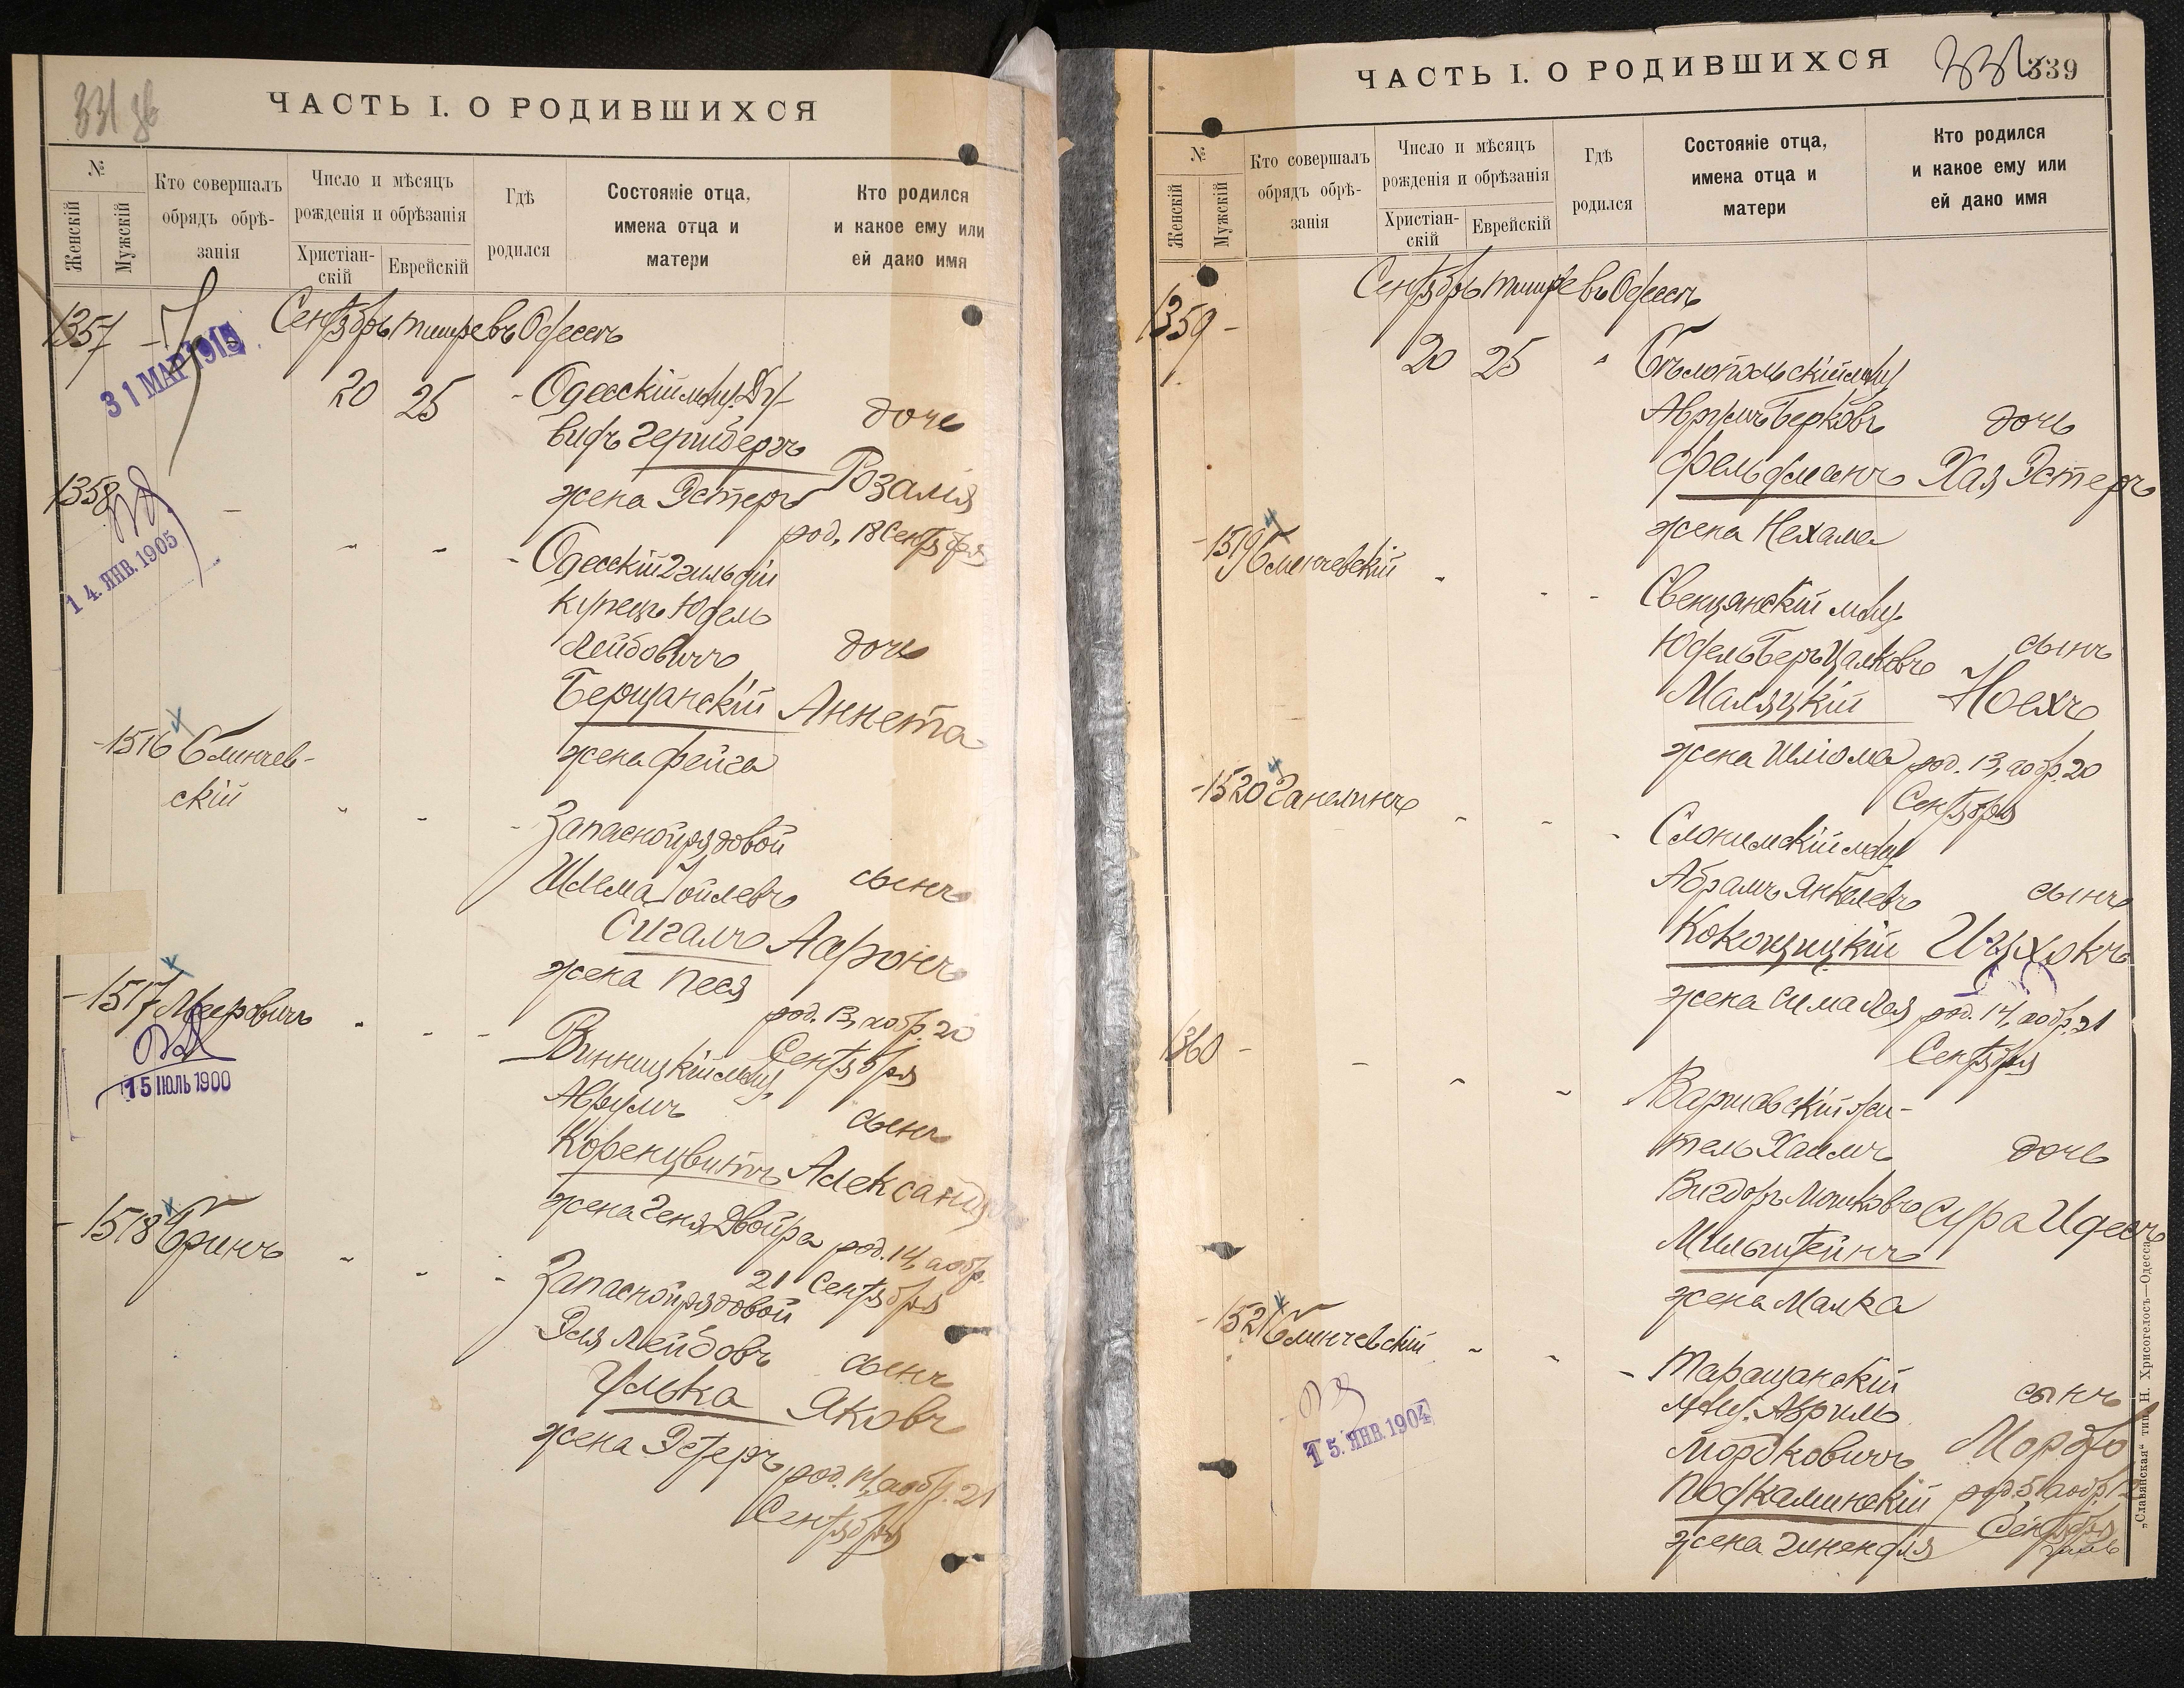 ЧАСТЬ I. О РОДИВШИХСЯ
№
Женскій
Мужскій
Кто совершалъ
обрядъ обрѣ-
занія
Число и мѣсяцъ
рожденія и обрѣзанія
Христіан-
скій
Еврейскій
Гдѣ
родился
Состояніе отца,
имена отца и
матери
Кто родился
и какое ему или
ей дано имя
1357
Сентябрь тишре въ Одессѣ
31 МАР 1915
20 25 - Одесскій мѣщ. Ду-
видъ Гершбергъ
дочь
жена Эстеръ
Розалія
род. 18 Сентября
1358
14. ЯНВ. 1905
Одесскій 2 гильдіи
купецъ Юдель
Лейбовичъ
дочь
Бершанскій
Аннета
жена Фейга
1516 Блинчев-
скій
Запасной рядовой
Шлема Іойлевъ
сынъ
Сигалъ
Ааронъ
жена Песя
род. 13, а обр. 20
Сентября
1517 Мееровичъ
15 ІЮЛЬ 1900
Винницкій мѣщ.
Аврумъ
сынъ
Коренцвитъ
Александръ
жена Геня Двойра
род. 14, а обр.
21 Сентября
1518 Бринъ
Запасной рядовой
Эля Лейбовъ
сынъ
Улька
Яковъ
жена Эстеръ
род. 14, а обр. 21
Сентября
ЧАСТЬ I. О РОДИВШИХСЯ
339
№
Женскій
Мужскій
Кто совершалъ
обрядъ обрѣ-
занія
Число и мѣсяцъ
рожденія и обрѣзанія
Христіан-
скій
Еврейскій
Гдѣ
родился
Состояніе отца,
имена отца и
матери
Кто родился
и какое ему или
ей дано имя
1359 -
Сентябрь тишре въ Одессѣ
20 25 Бѣлопольскій мѣщ
Аврумъ Берковъ
дочь
Фельдманъ
Хая Эстеръ
жена Нехама
1519 Блинчевскій
Свенцянскій мѣщ.
Юдель Беръ Цалковъ
сынъ
Маляцкій
Ноехъ
жена Шліома
род. 13, а обр. 20
Сентября
1520 Ганелинъ
Слонимскій мѣщ
Абрамъ Янкелевъ
сынъ
Кокощицкій
Ицхокъ
жена Сима Лея
род. 14, а обр. 21
Сентября
1360 -
Варшавскій жи-
тель Хаимъ
дочь
Вигдоръ Мошковъ
Сура Идесъ
Мильштейнъ
жена Малка
1521 Блинчевскій
15. ЯНВ. 1904
Таращанскій
мѣщ. Авриль
сынъ
Мордковичъ
Мордко
Подкаминскій
жена Гинендля
Сентября
„Славянская“ тип. Н. Хрисогелосъ—Одесса.